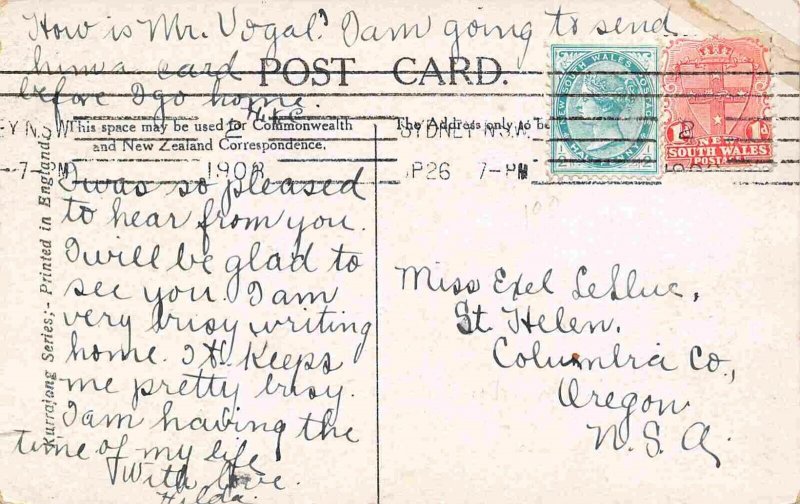 How is Mr. Vogal? I am going to send
him a card
before I go home.
POST CARD.
This space may be used for Commonwealth
and New Zealand Correspondence.
The Address only to be
SYDNEY N.S.W
1908
26 7-PM
7-PM
NEW SOUTH WALES POSTAGE
HALFPENNY
1d 1d
NEW
SOUTH WALES
POSTAGE
Kurrajong Series;- Printed in England.
I was so pleased
to hear from you.
I will be glad to
see you. I am
very busy writing
home. It keeps
me pretty busy.
I am having the
time of my life
With love.
Hilda.
Miss Exel LeSlue,
St. Helen.
Columbia Co.,
Oregon
U.S.A.